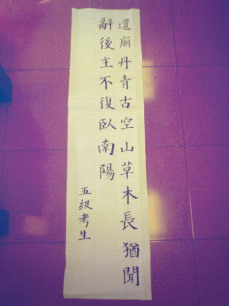 遺廟丹青古空山草木長猶聞
辭後主不復臥南陽
五級考生